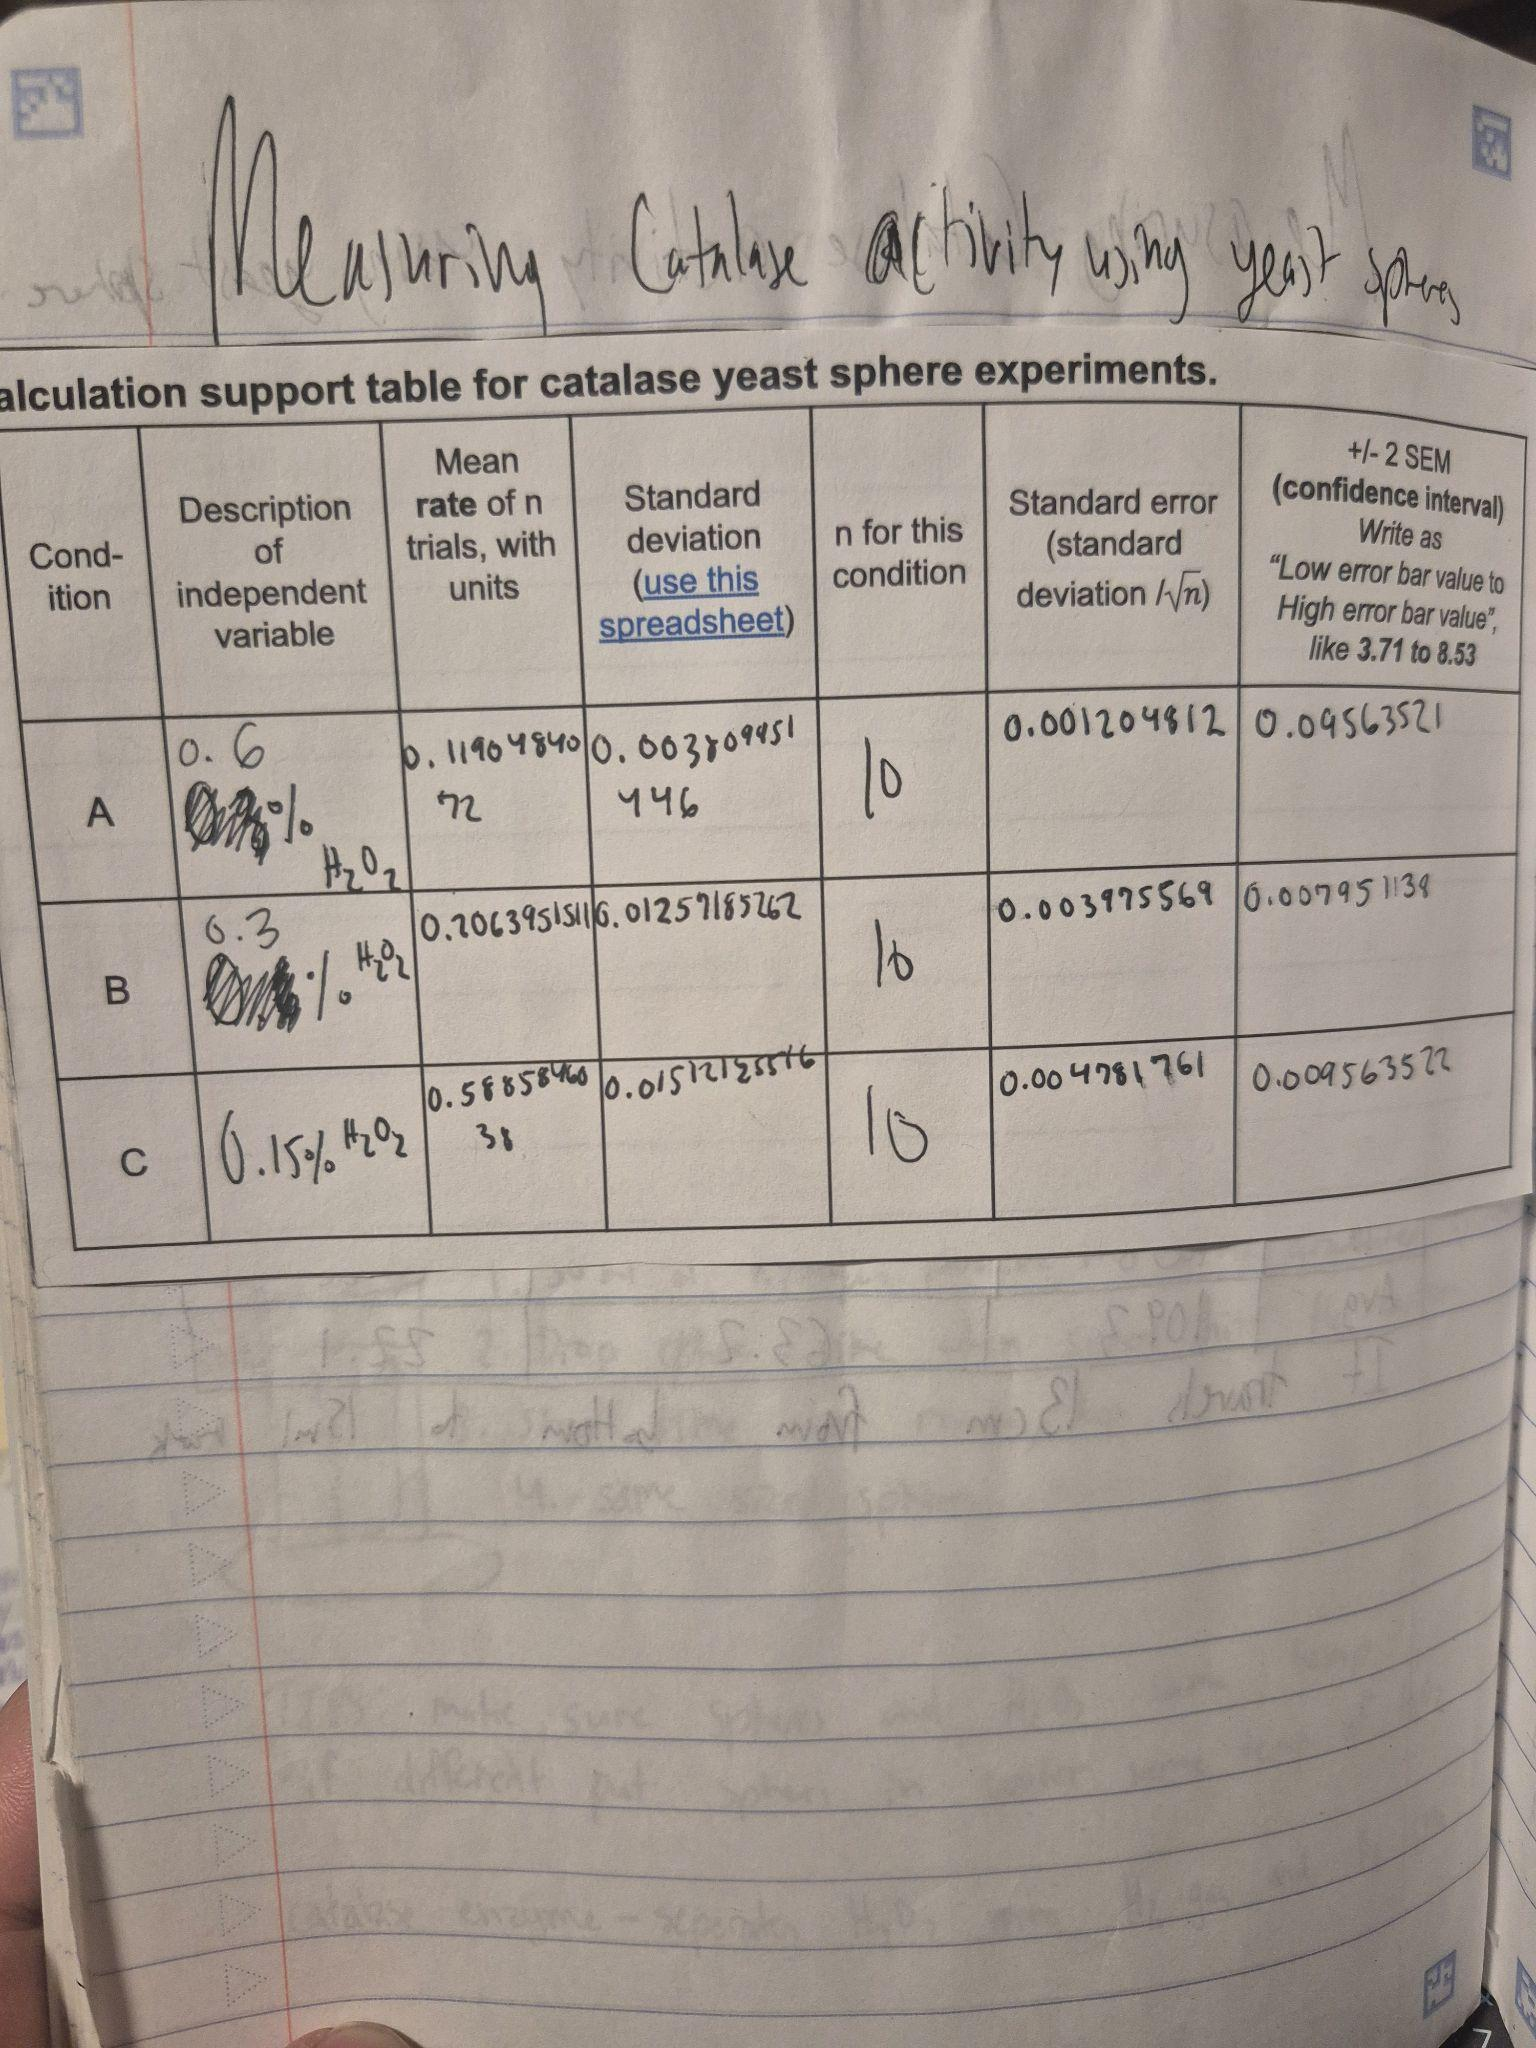 Measuring Catalase Activity using yeast spheres
alculation support table for catalase yeast sphere experiments.
Cond-
ition
Description
of
independent
variable
Mean
rate of n
trials, with
units
Standard
deviation
(use this
spreadsheet)
n for this
condition
Standard error
(standard
deviation /√n)
+/- 2 SEM
(confidence interval)
Write as
“Low error bar value to
High error bar value”,
like 3.71 to 8.53
A
0.6
%
H₂O₂
0.11904840
72
0.003809951
446
10
0.001204812
0.09563521
B
0.3
% H₂O₂
0.2063951511
0.01257185262
10
0.003975569
0.007951138
C
0.15% H₂O₂
0.58858460
38
0.01512125516
10
0.004781761
0.009563522